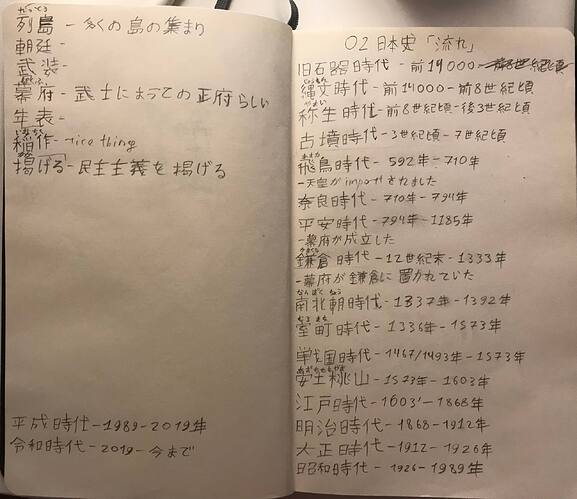 列島 - 多くの島の集まり
朝廷 -
武装 -
ばくふ
幕府 - 武士によっての正府らしい
年表 -
稲作 - rice thing
揚げる - 民主主義を揚げる
平成時代 - 1989 - 2019年
令和時代 - 2019 - 今まで
02 日本史「流れ」
旧石器時代 - 前14000 -
じょうもん
縄文時代 - 前14000 - 前8世紀頃
やよい
弥生時代 - 前8世紀頃 - 後3世紀頃
古墳時代 - 3世紀頃 - 7世紀頃
あすか
飛鳥時代 - 592年 - 710年
- 天皇が importされました
奈良時代 - 710年 - 794年
平安時代 - 794年 - 1185年
- 幕府が成立した
かまくら
鎌倉時代 - 12世紀末 - 1333年
- 幕府が鎌倉に置かれていた
なんぼくちょう
南北朝時代 - 1337年 - 1392年
むろまち
室町時代 - 1336年 - 1573年
戦国時代 - 1467/1493年 - 1573年
安土桃山 - 1573年 - 1603年
江戸時代 - 1603 - 1868年
明治時代 - 1868 - 1912年
大正時代 - 1912 - 1926年
昭和時代 - 1926 - 1989年